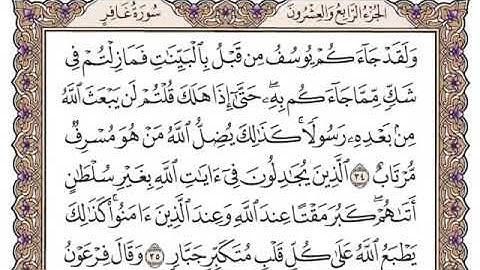 الجزء الرابع والعشرون سورة غافر
وَلَقَدْ جَآءَكُمْ يُوسُفُ مِن قَبْلُ بِٱلْبَيِّنَٰتِ فَمَا زِلْتُمْ فِى
شَكٍّ مِّمَّا جَآءَكُم بِهِۦ ۖ حَتَّىٰٓ إِذَا هَلَكَ قُلْتُمْ لَن يَبْعَثَ ٱللَّهُ
مِنۢ بَعْدِهِۦ رَسُولًا ۚ كَذَٰلِكَ يُضِلُّ ٱللَّهُ مَنْ هُوَ مُسْرِفٌ
مُّرْتَابٌ ٣٤ ٱلَّذِينَ يُجَٰدِلُونَ فِىٓ ءَايَٰتِ ٱللَّهِ بِغَيْرِ سُلْطَٰنٍ
أَتَىٰهُمْ ۖ كَبُرَ مَقْتًا عِندَ ٱللَّهِ وَعِندَ ٱلَّذِينَ ءَامَنُوا۟ ۚ كَذَٰلِكَ
يَطْبَعُ ٱللَّهُ عَلَىٰ كُلِّ قَلْبِ مُتَكَبِّرٍ جَبَّارٍ ٣٥ وَقَالَ فِرْعَوْنُ